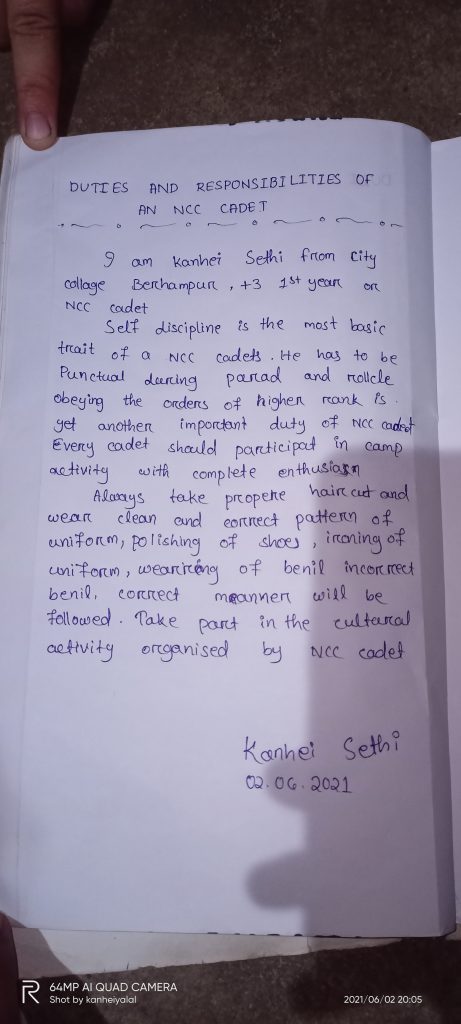 DUTIES AND RESPONSIBILITIES OF
AN NCC CADET
I am Kanhei Sethi from City
collage Berhampur, +3 1st year on
NCC cadet
Self discipline is the most basic
trait of a NCC cadets. He has to be
Punctual during parad and rollcle
obeying the orders of higher rank is.
yet another important duty of NCC cadet
Every cadet should participat in camp
activity with complete enthusiasm
Always take propere haircut and
wear clean and correct pattern of
uniform, polishing of shoes, ironing of
uniform, wearing of benil incorrect
benil, correct meanner will be
followed. Take part in the cultural
activity organised by NCC cadet
Kanhei Sethi
02.06.2021
64MP AI QUAD CAMERA
Shot by kanheiyalal
2021/06/02 20:05